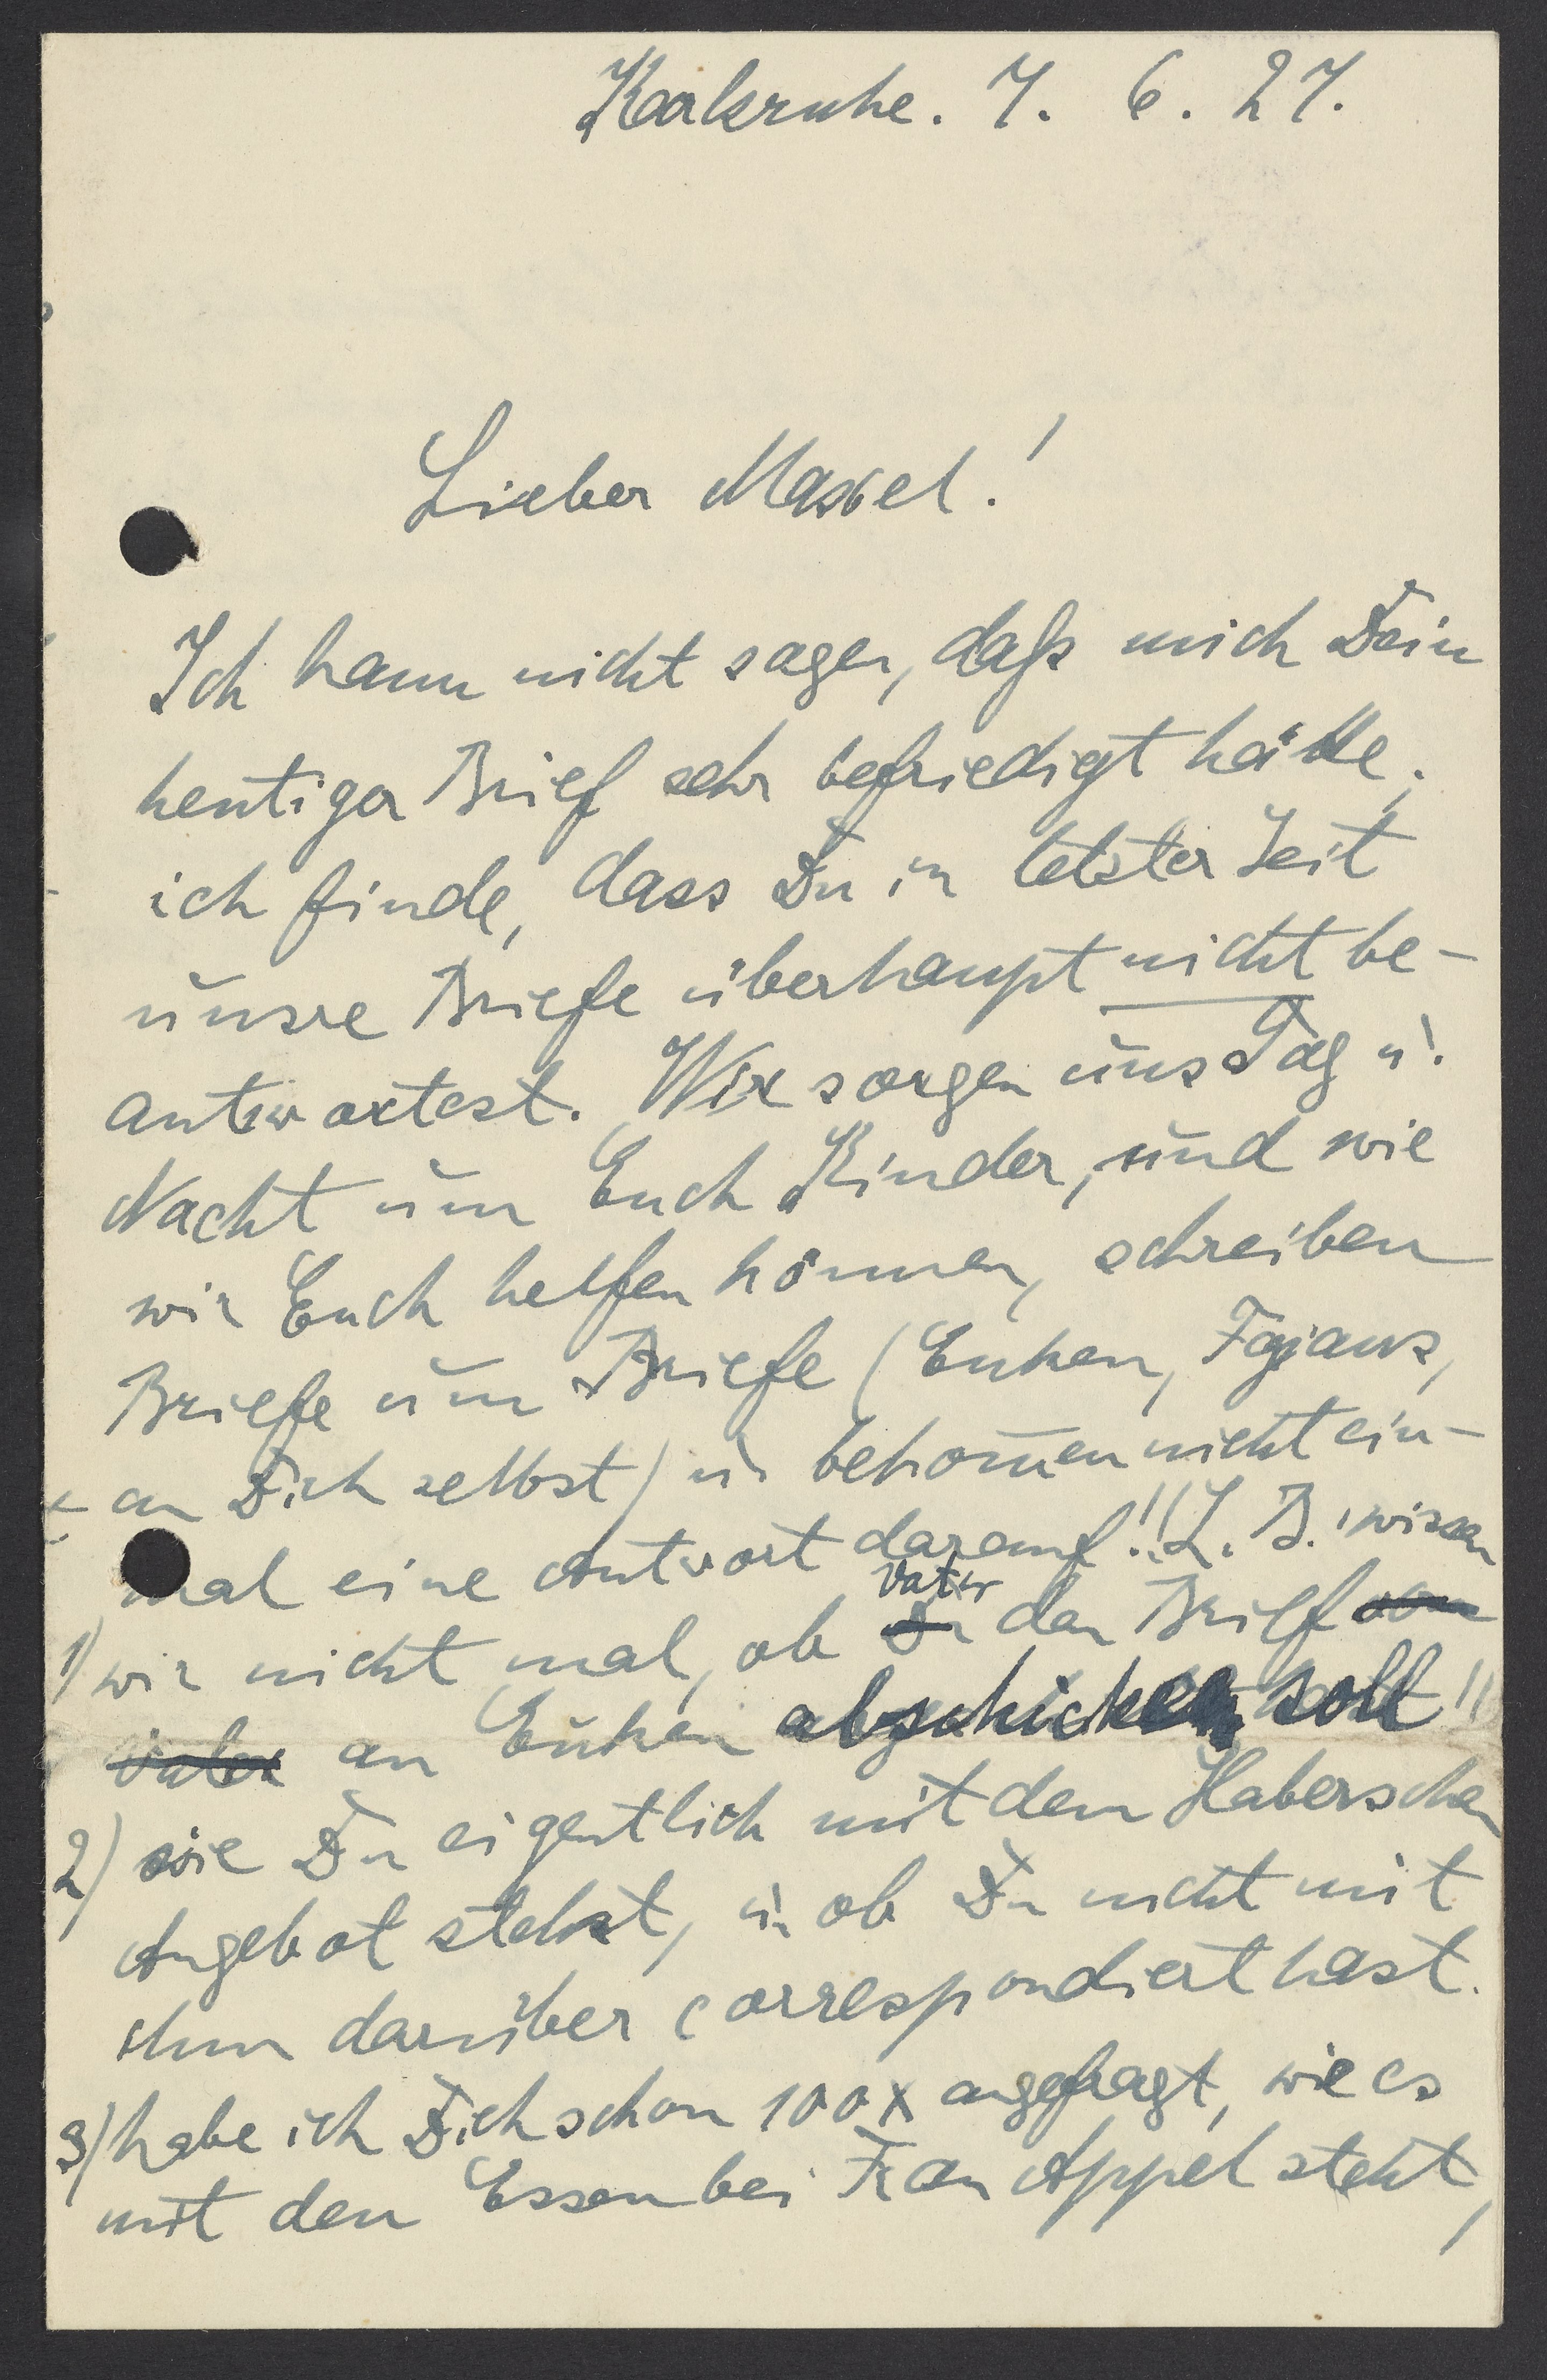 Karlsruhe. 7. 6. 27.
Lieber Maxel!
Ich kann nicht sagen, daß mich Dein
heutiger Brief sehr befriedigt hätte;
ich finde, dass Du in letzter Zeit
unsre Briefe überhaupt nicht be-
antwortest. Wir sorgen uns Tag u.
Nacht um Euch Kinder, und wie
wir Euch helfen können, schreiben
Briefe um Briefe (Euken, Fajans,
an Dich selbst) u. bekommen nicht ein-
mal eine Antwort darauf!! Z. B. wissen
1) wir nicht mal, ob Du Vater den Brief von
Vater an Euken abschicken soll!!
2) wie Du eigentlich mit dem Haberschen
Angebot stehst, u. ob Du nicht mit
ihm darüber correspondiert hast.
3) habe ich Dich schon 100x angefragt, wie es
mit den Essen bei Frau Appel steht,